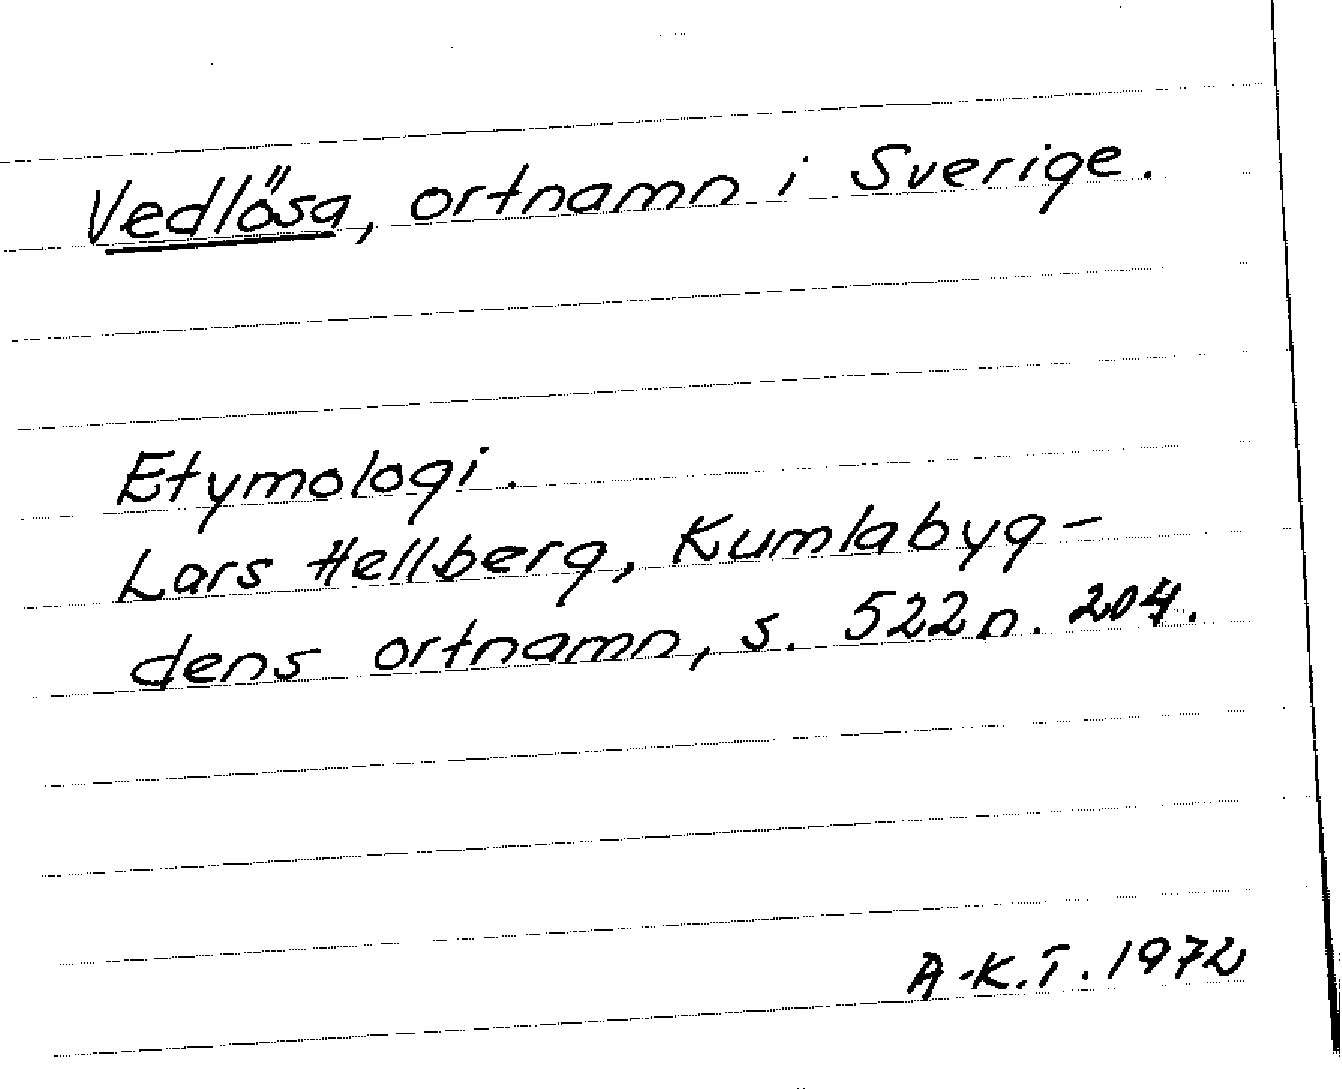 Vedlösa, ortnamn i Sverige.
Etymologi.
Lars Hellberg, Kumlabyg-
dens ortnamn, s. 522 n. 204.
A-K.T. 1972